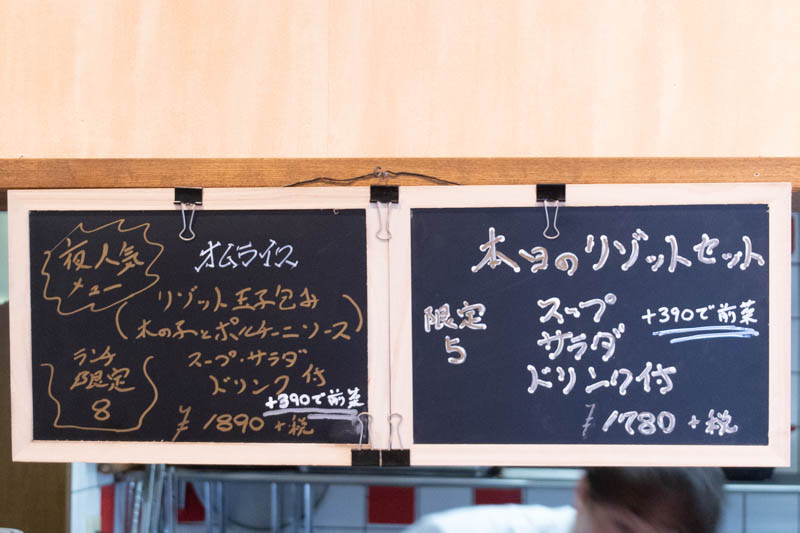 夜人気
メニュー
オムライス
リゾット玉子包み
(木の子とポルチーニソース)
ランチ
限定
8
スープ・サラダ
ドリンク付
+390で前菜
¥1890+税
本日のリゾットセット
限定
5
スープ
サラダ
ドリンク付
+390で前菜
¥1780+税